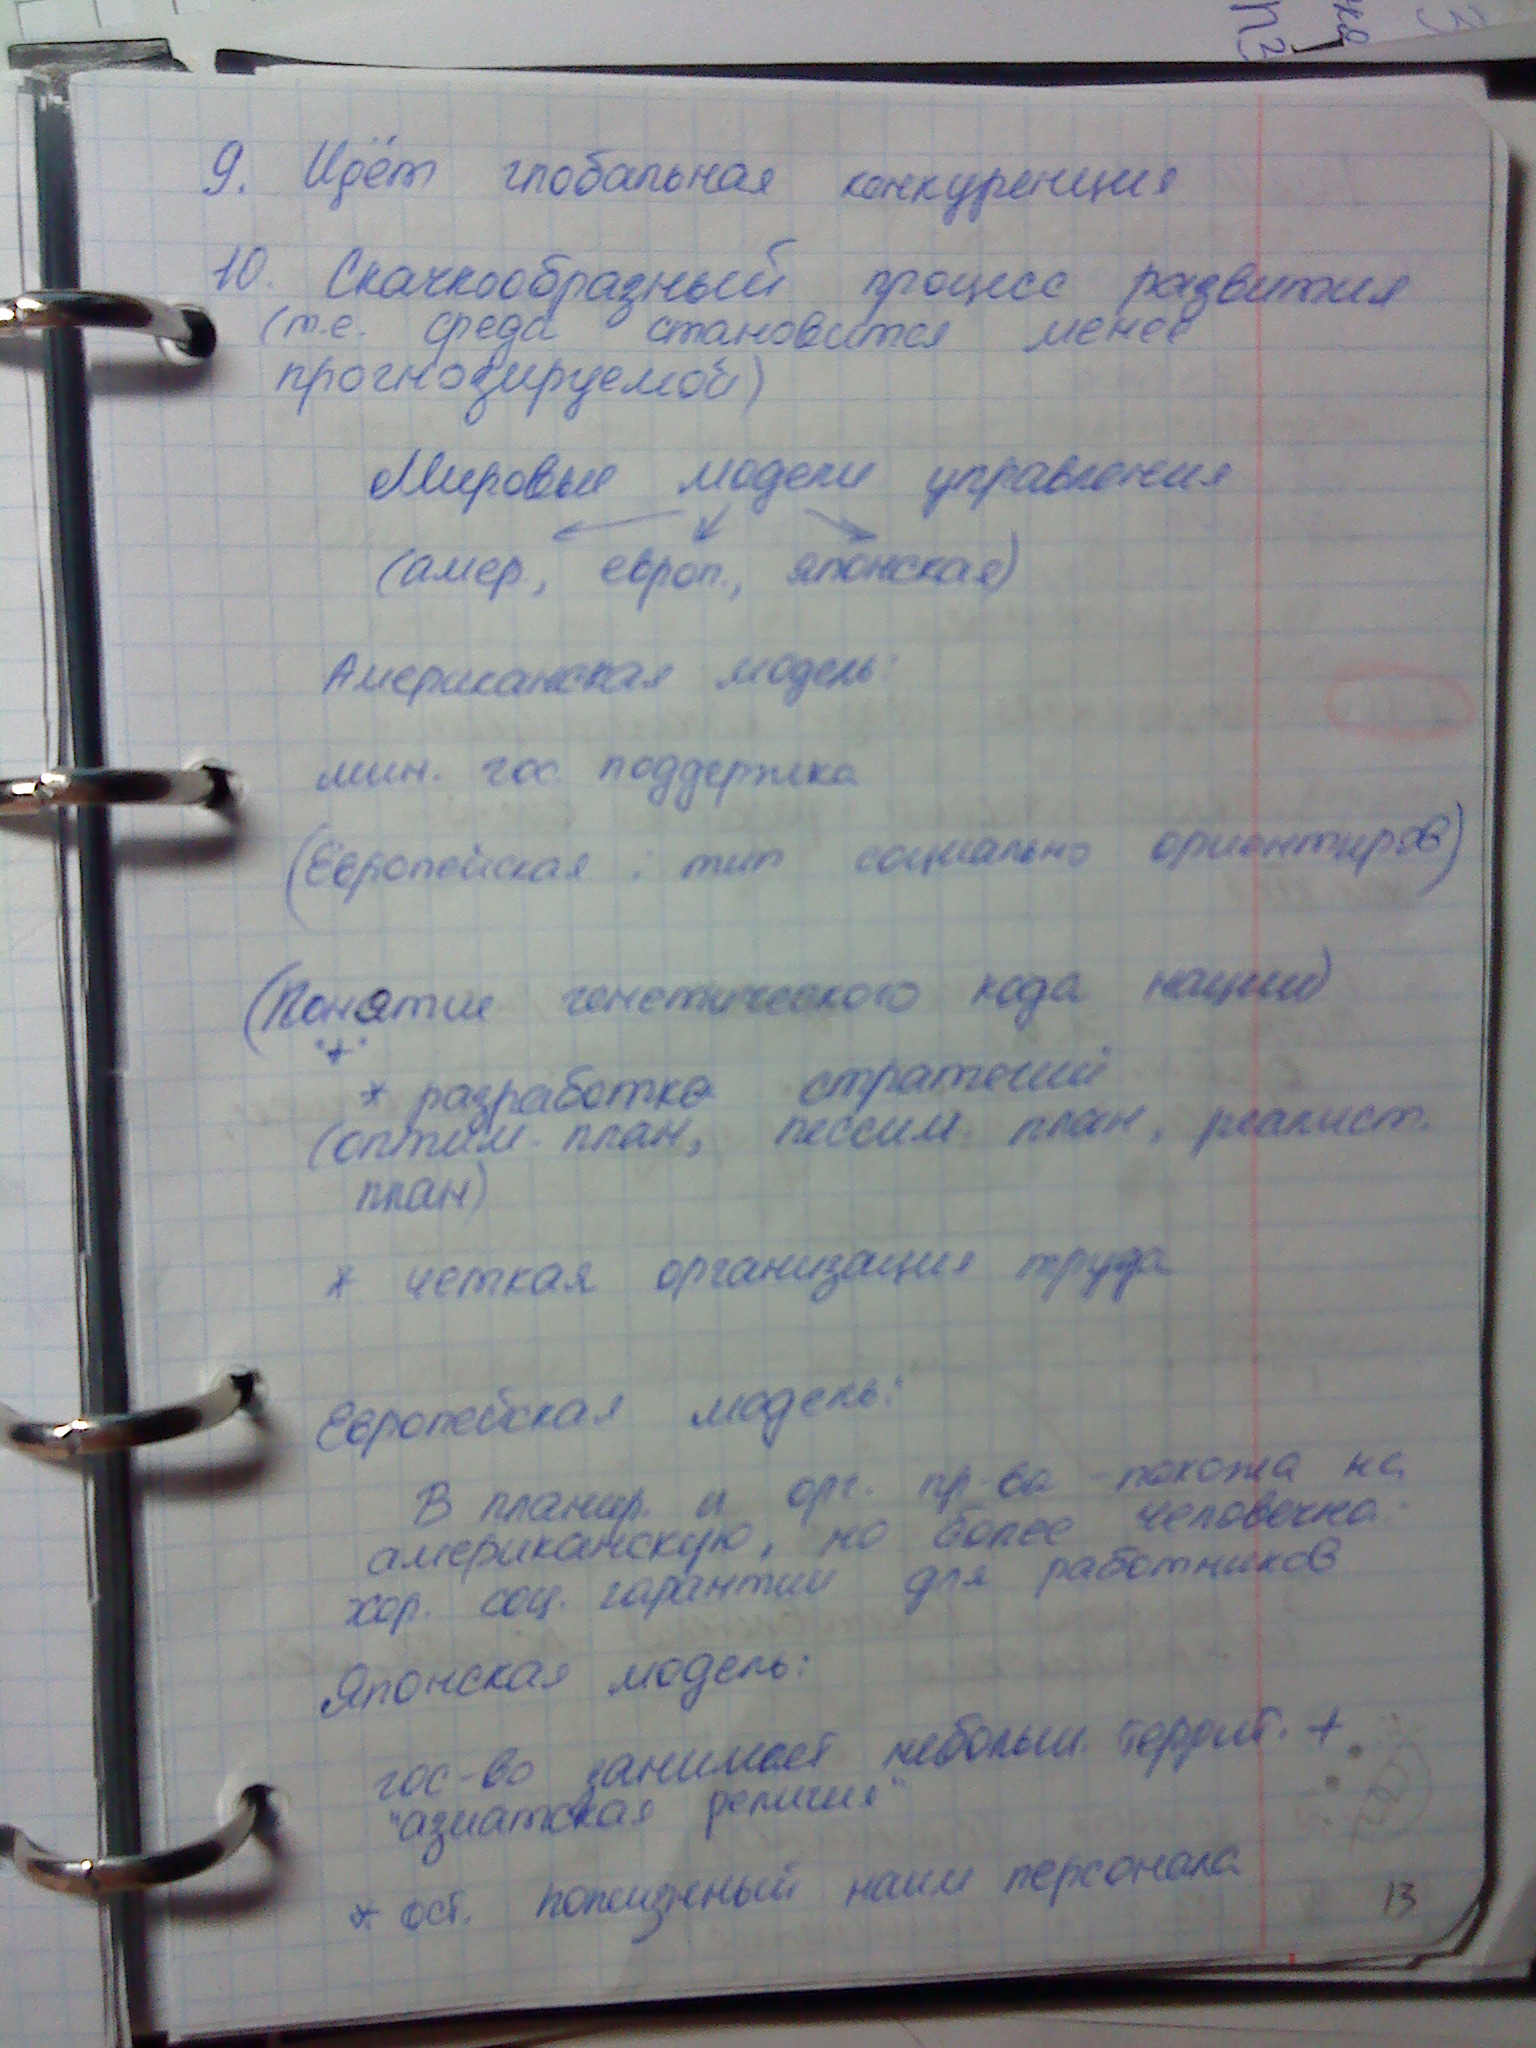 9. Идёт глобальная конкуренция
10. Скачкообразный процесс развития
(т.е. среда становится менее
прогнозируемой)
Мировые модели управления
(амер., европ., японская)
Американская модель:
мин. гос поддержка
(Европейская : тип социально ориентиров)
(Понятие генетического кода нации)
"+"
* разработка стратегий
(оптим. план, пессим. план, реалист.
план)
* четкая организация труда
Европейская модель:
В планир. и орг. пр-ва - похожа на
американскую, но более человечна.
хор. соц. гарантии для работников
Японская модель:
гос-во занимает небольш. террит. +
"азиатская религия"
* ост. пожизненый найм персонала
13